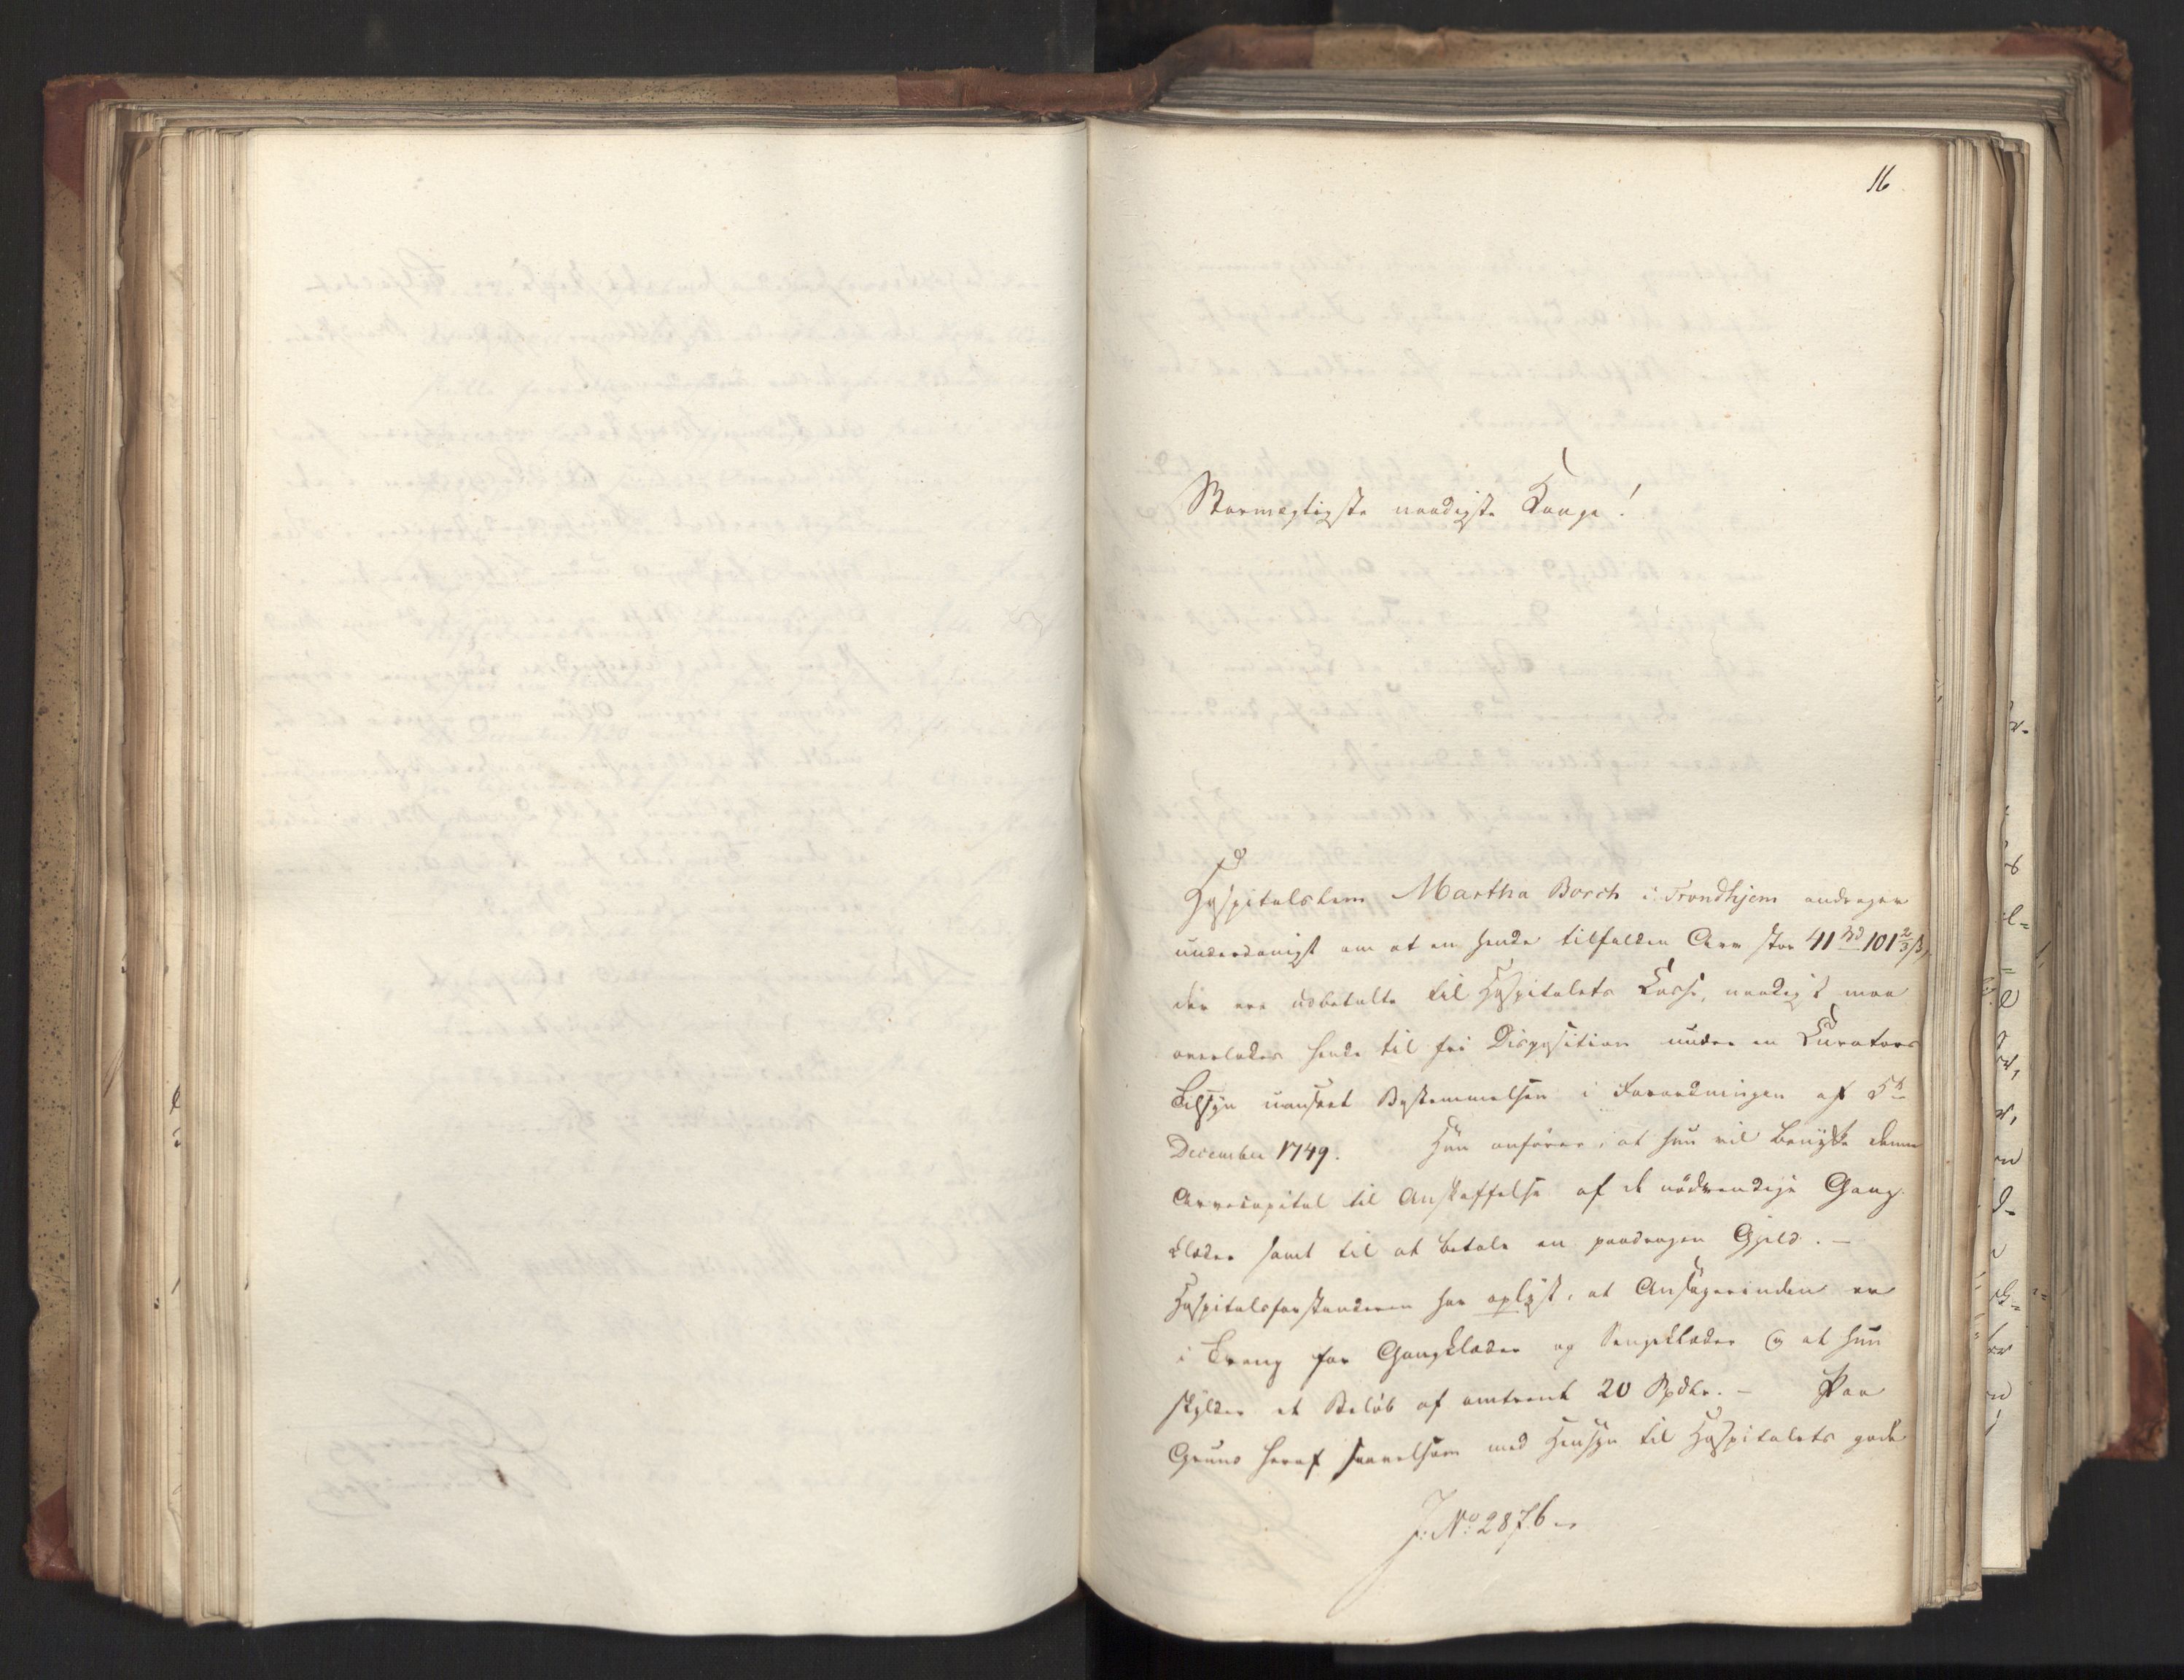 16
Stormægtigste naadigste Konge!
Hospitalslem Martha Borch i Trondhjem andrager
underdanigst om at en hende tilfalden Arv stor 41 Spd 101 2/3 ß,
der ere udbetalte til Hospitalets Casse, naadigst maa
overlades hende til fri Disposition under en Curators
Tilsyn uanseet Bestemmelsen i Forordningen af 5te
December 1749. Hun anfører, at hun vil benytte denne
Arvecapital til Anskaffelse af de nødvendige Gang-
klæder samt til at betale en paadragen Gjeld. —
Hospitalsforstanderen har oplyst, at Ansøgerinden er
i Trang for Gangklæder og Sengeklæder og at hun
skylder et Beløb af omtrent 20 Spdlr. — Paa
Grund heraf saavelsom med Hensyn til Hospitalets gode
J: No: 2876